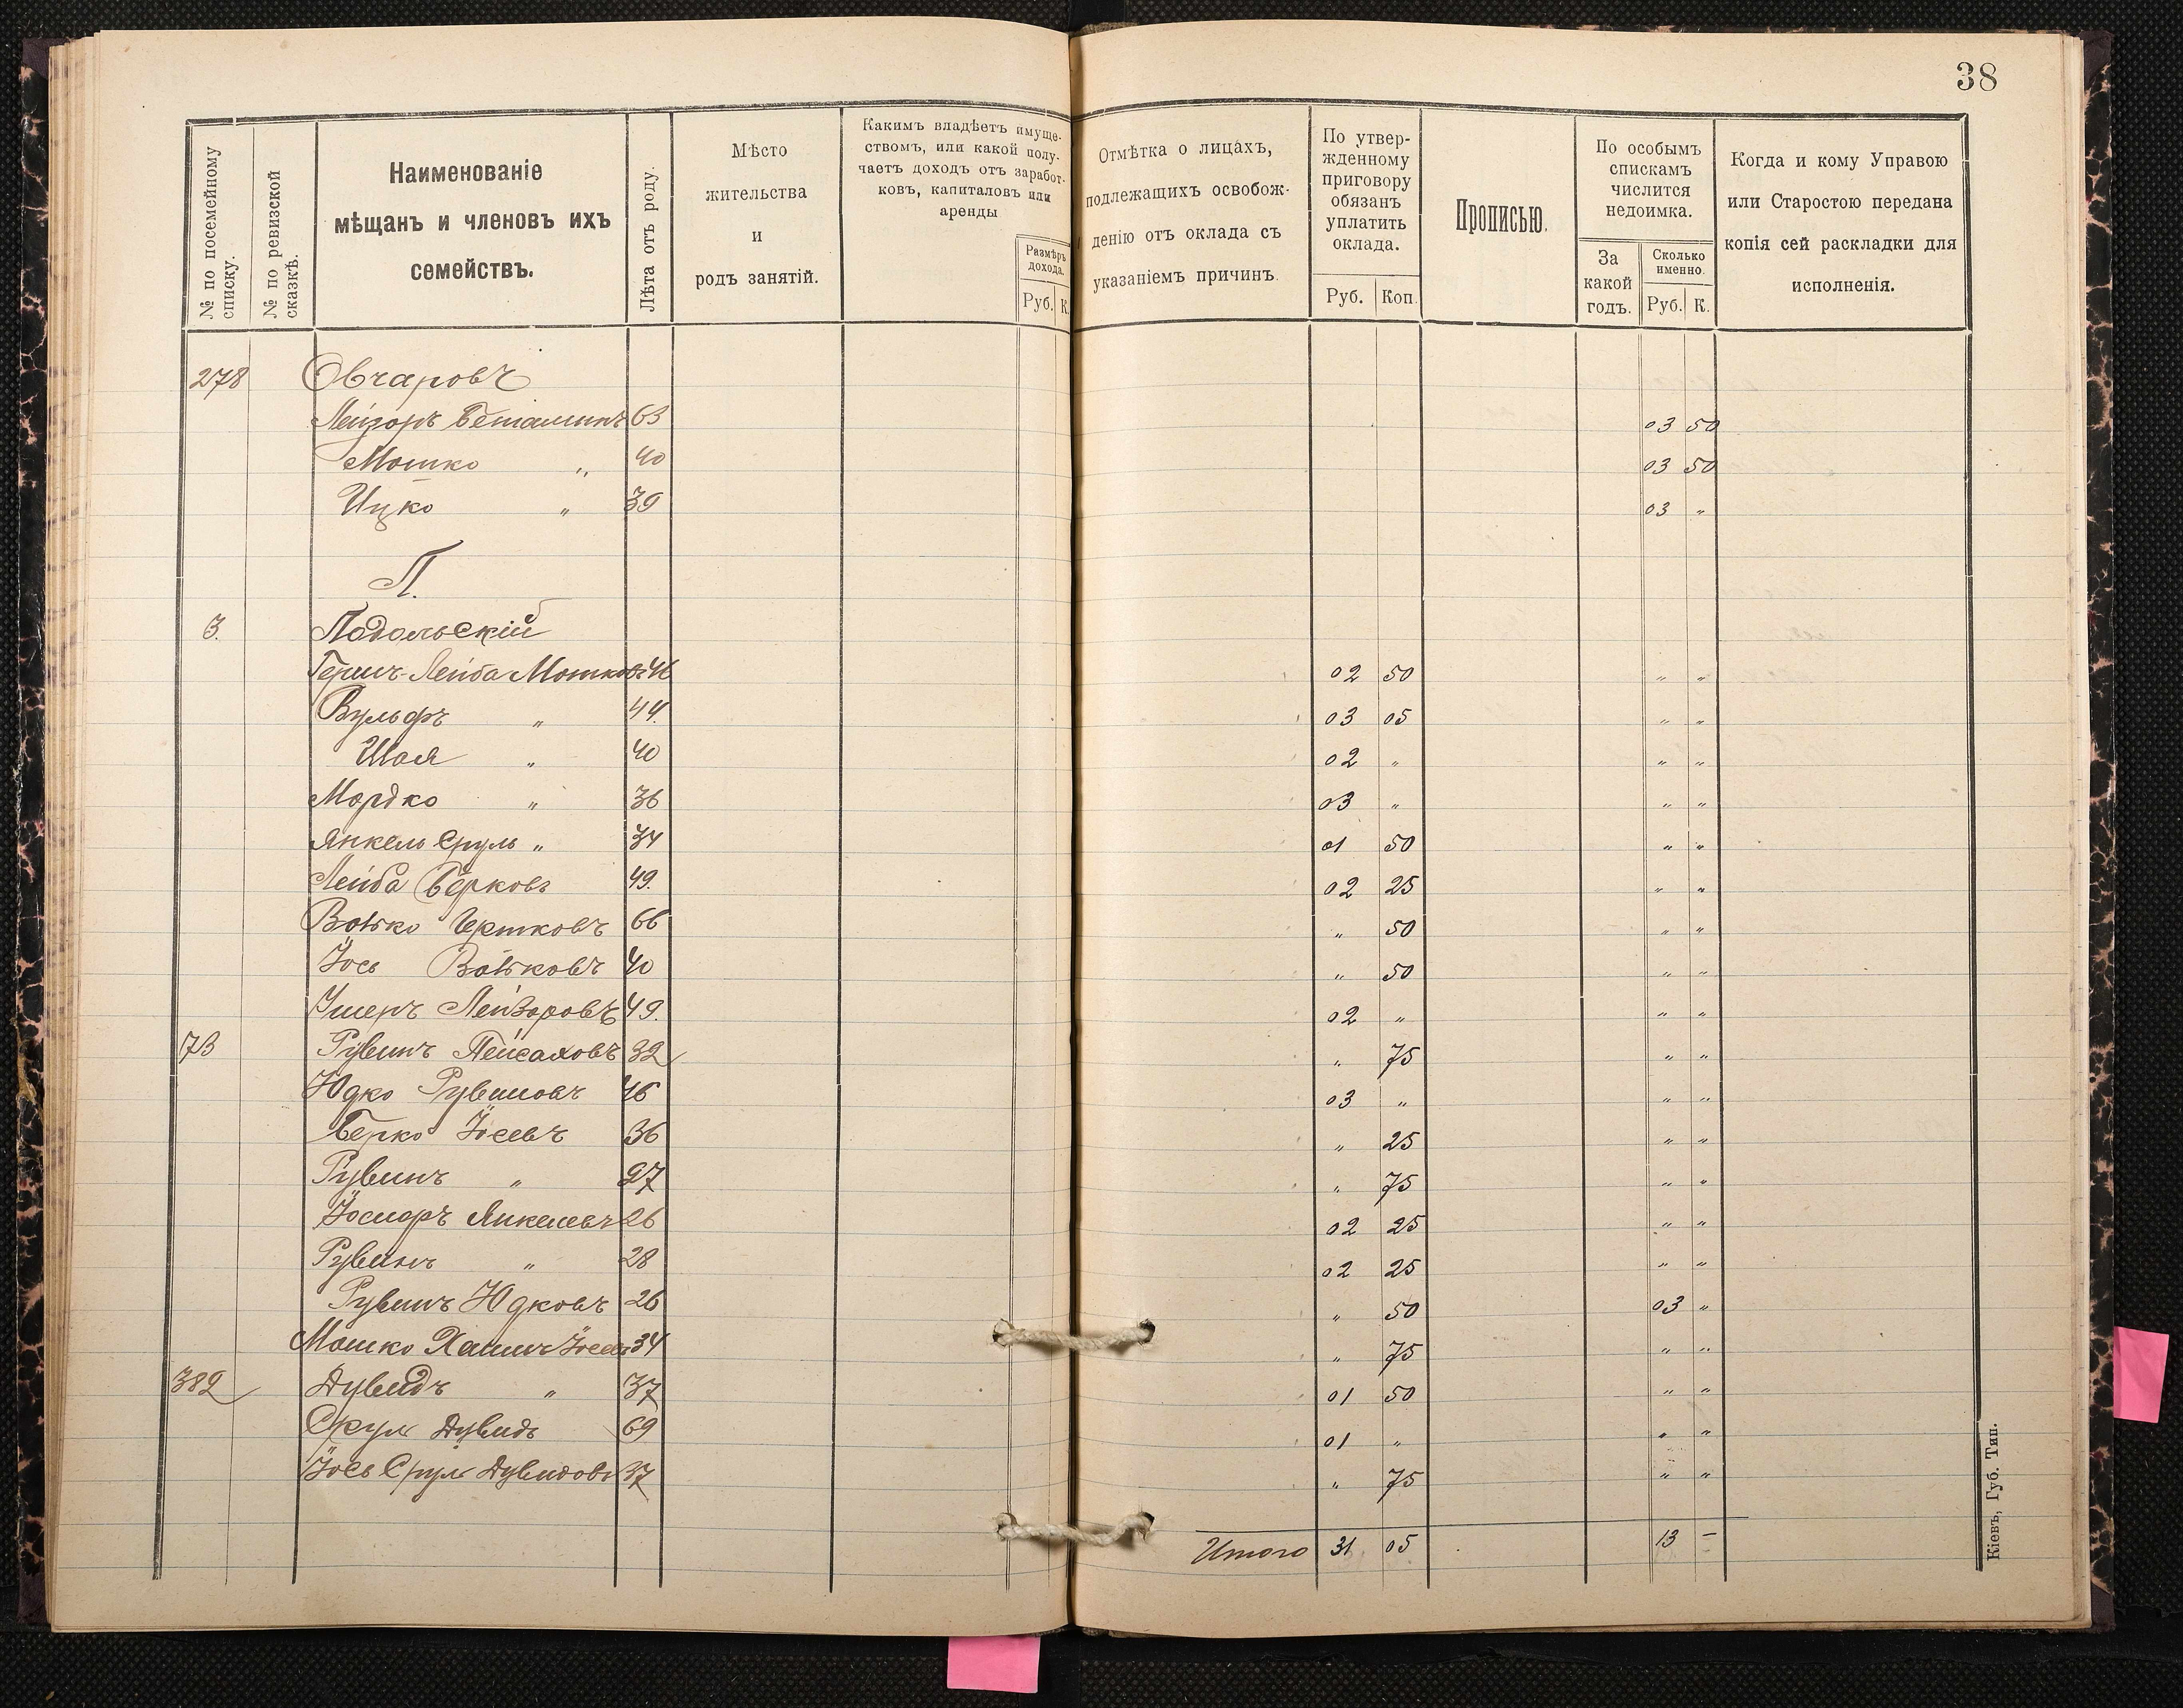 38
№ по посемейному списку.
№ по ревизской сказкѣ.
Наименованіе
мѣщанъ и членовъ ихъ
семействъ.
Лѣта отъ роду.
Мѣсто
жительства
и
родъ занятій.
Какимъ владѣетъ имуще-
ствомъ, или какой полу-
чаетъ доходъ отъ заработ-
ковъ, капиталовъ или
аренды
Размѣръ
дохода.
Руб. К.
Отмѣтка о лицахъ,
подлежащихъ освобож-
денію отъ оклада съ
указаніемъ причинъ.
По утвер-
жденному
приговору
обязанъ
уплатить
оклада.
Руб. Коп.
Прописью.
По особымъ
спискамъ
числится
недоимка.
За
какой
годъ.
Сколько
именно.
Руб. К.
Когда и кому Управою
или Старостою передана
копія сей раскладки для
исполненія.
278 Овчаровъ
Лейзоръ 63 03 50
Мошко „ 40 03 50
Ицко „ 39 03 „
П.
3. Подольскій
Гершъ-Лейба Мошковъ 46 02 50 „ „
Вульфъ „ 44. 03 05 „ „
Шая „ 40 02 „ „ „
Мордко „ 36 03 „ „ „
Янкель Сруль „ 34 01 50 „ „
Лейба Берковъ 49. 02 25 „ „
Волько 66 „ 50 „ „
Іось Вольковъ 40 „ 50 „ „
Ушеръ Лейзоровъ 49. 02 „ „ „
73 Рувинъ Пейсаховъ 32 „ 75 „ „
Юдко Рувиновъ 46 03 „ „ „
Берко Іосевъ 36 „ 25 „ „
Рувинъ „ 27 „ 75 „ „
Янкелевъ 26 02 25 „ „
Рувинъ „ 28 02 25 „ „
Рувинъ Юдковъ 26 „ 50 03 „
Мошко Хаимъ Іосевъ 34 „ 75 „ „
382 Дувидъ „ 37 01 50 „ „
Срул Дувидъ 69 01 „ „ „
Іось Срул Дувидовъ 37 „ 75 „ „
Итого 31 05 13 –
Кіевъ, Губ. Тип.